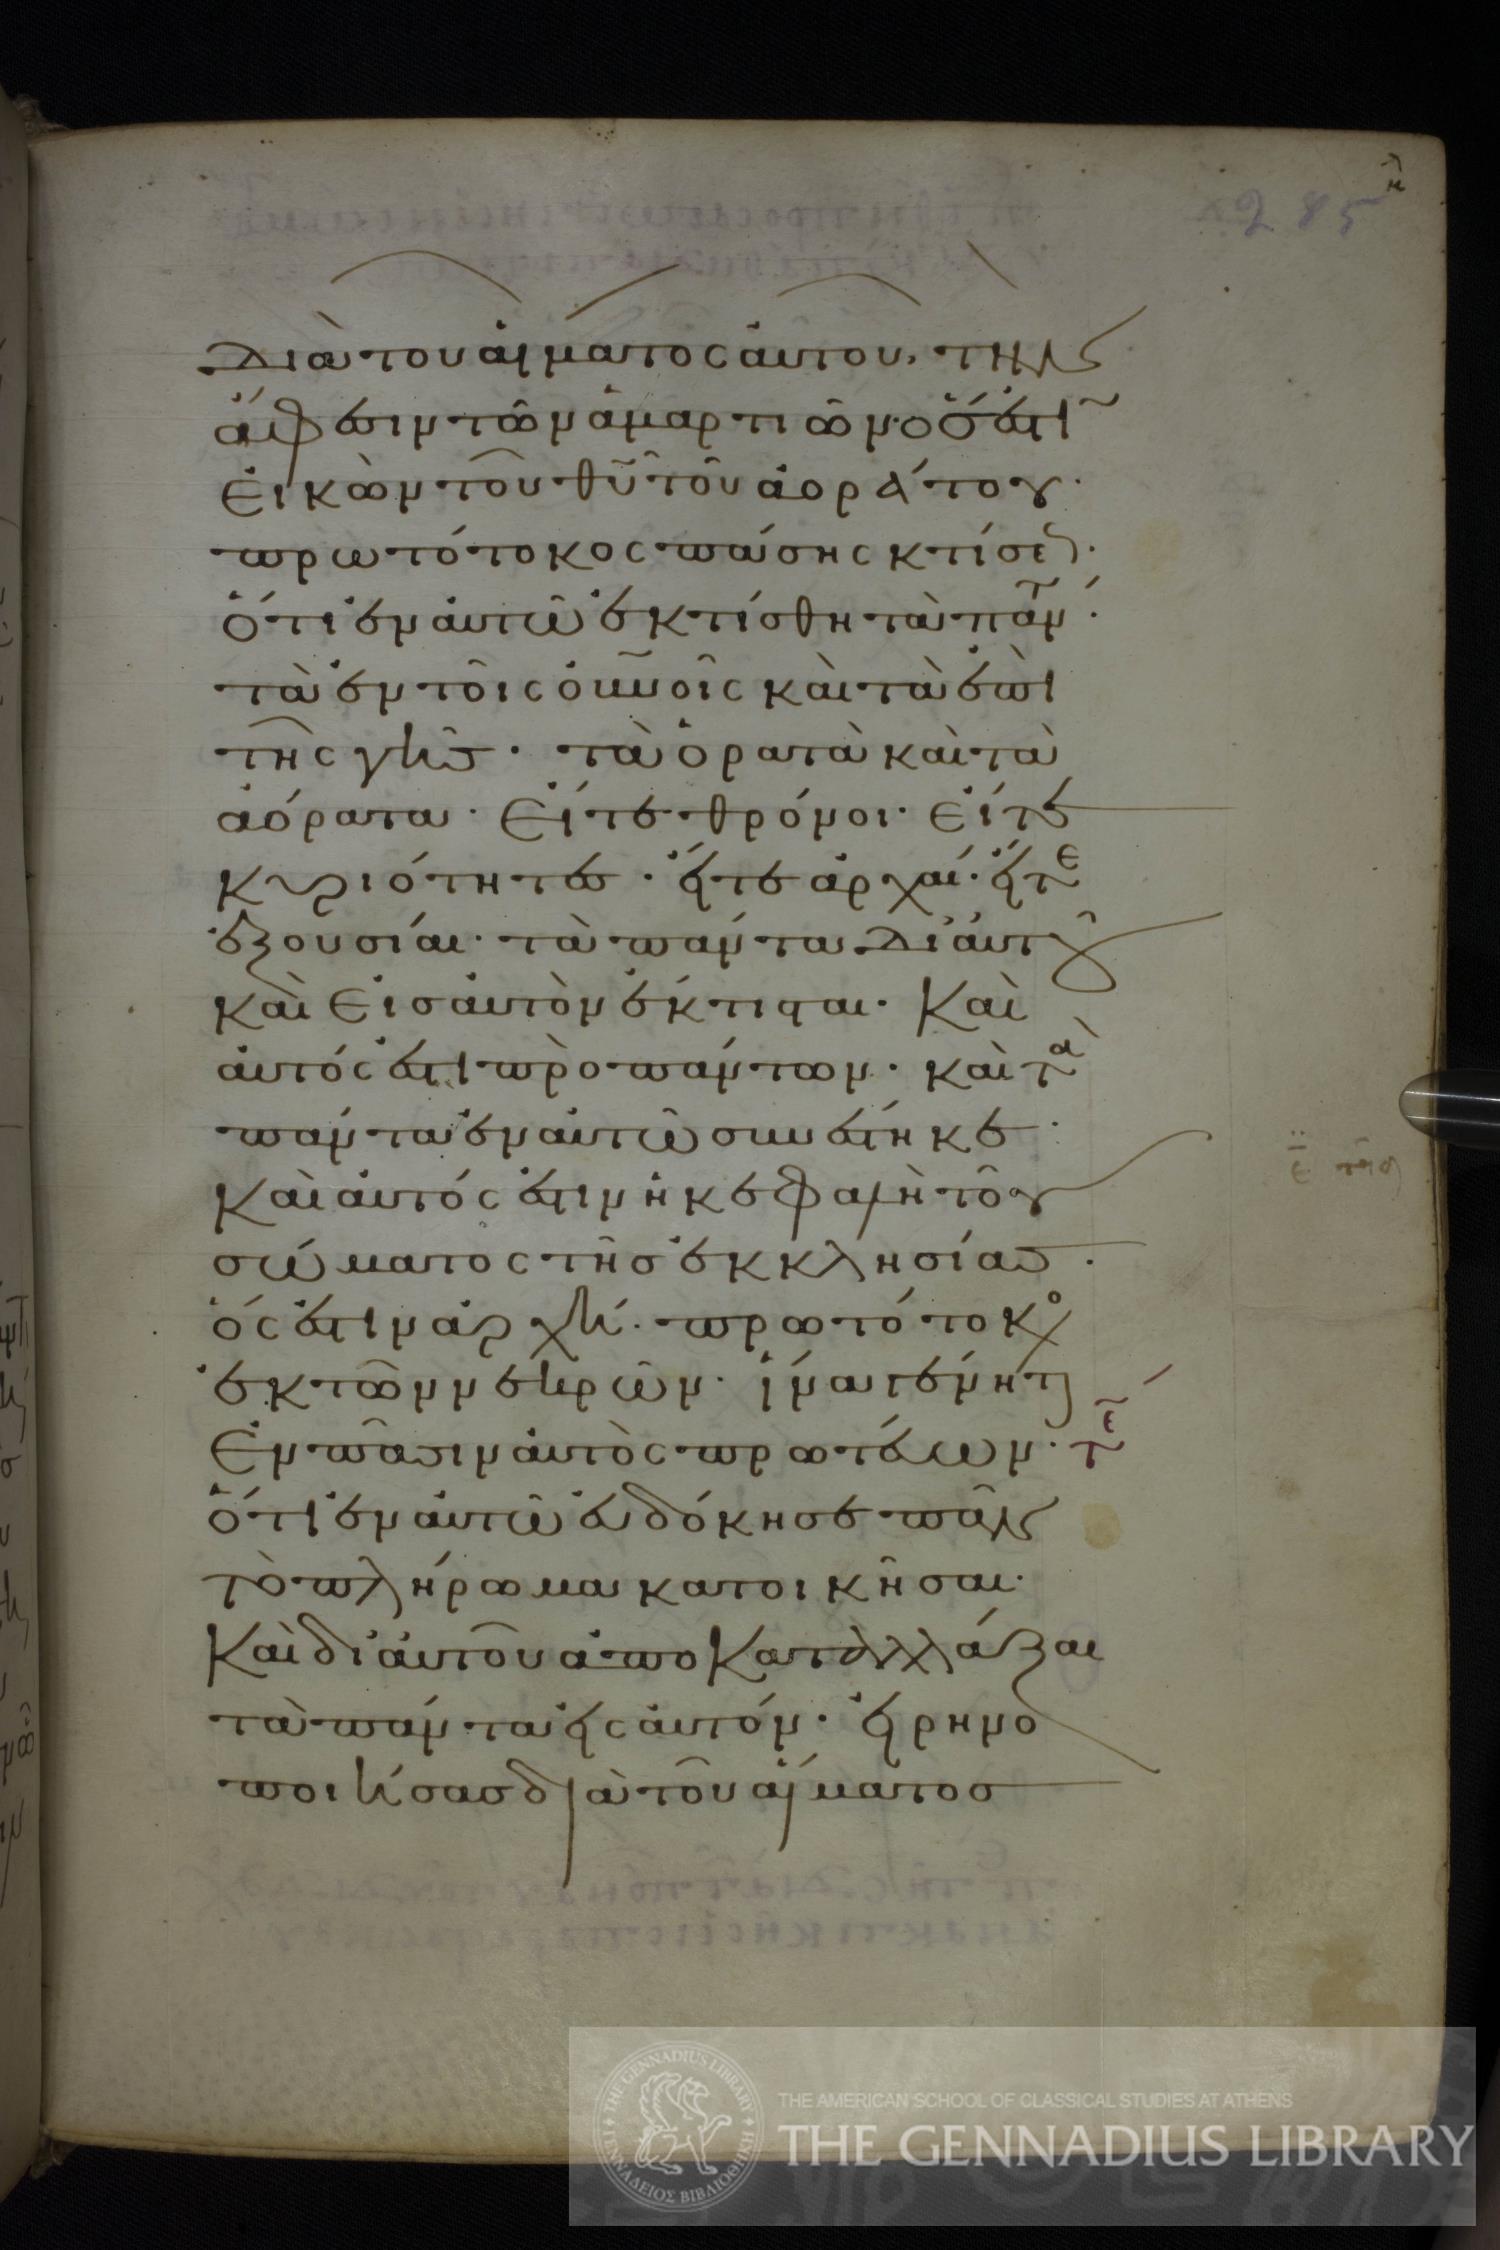 285
διὰ του αἵματος αὐτου, την
ἄφεσιν τῶν ἁμαρτιῶν· ὅς ἐστῖ
εἰκὼν τοῦ θῦ τοῦ ἀοράτου·
πρωτότοκος πάσης κτίσε·
ὅτι ἐν αὐτῶ ἐκτίσθη τὰ πάν·
τὰ ἐν τοῖς οὐνοῖς καὶ τὰ ἐπὶ
τῆς γῆς· τὰ ὁρατὰ καὶ τὰ
ἀόρατα· εἴτε θρόνοι· εἴτε
κυριότητες· εἴτε ἀρχαί· εἴτε
ἐξουσίαι· τὰ πάντα δι' αὐτοῦ
καὶ εἰς αὐτὸν ἔκτισται· καὶ
αὐτός ἐστι πρὸ πάντων· καὶ τὰ
πάντα ἐν αὐτῶ συνέστηκε·
καὶ αὐτός ἐστιν ἡ κεφαλὴ τοῦ
σώματος τῆς ἐκκλησίας·
ὅς ἐστιν ἀρχή· πρωτότοκος
ἐκ τῶν νεκρῶν· ἵνα γένηται
ἐν πᾶσιν αὐτὸς πρωτεύων· τε
ὅτι ἐν αὐτῶ εὐδόκησε πᾶν
τὸ πλήρωμα κατοικῆσαι·
καὶ δι' αὐτοῦ ἀποκαταλλάξαι
τὰ πάντα εἰς αὐτόν· εἰρηνο
ποιήσας διὰ τοῦ αἵματος
THE GENNADIUS LIBRARY
ΓΕΝΝΑΔΕΙΟΣ ΒΙΒΛΙΟΘΗΚΗ
THE AMERICAN SCHOOL OF CLASSICAL STUDIES AT ATHENS
THE GENNADIUS LIBRARY